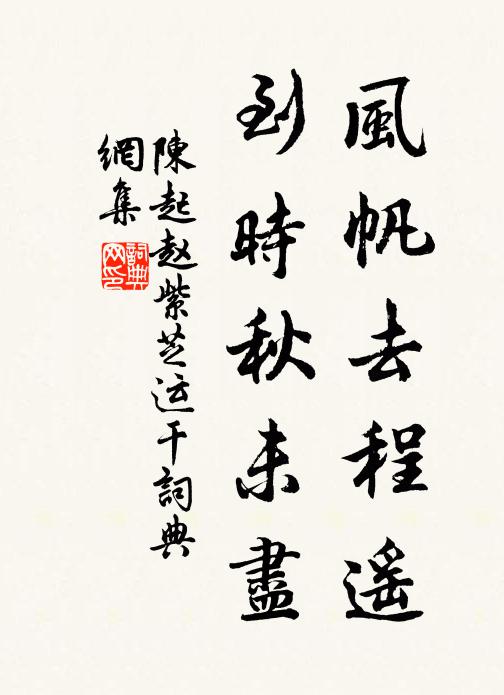 風帆去程遥
到時秋未盡
陳起赵紫芝运干詞典
網集
詞典
网印